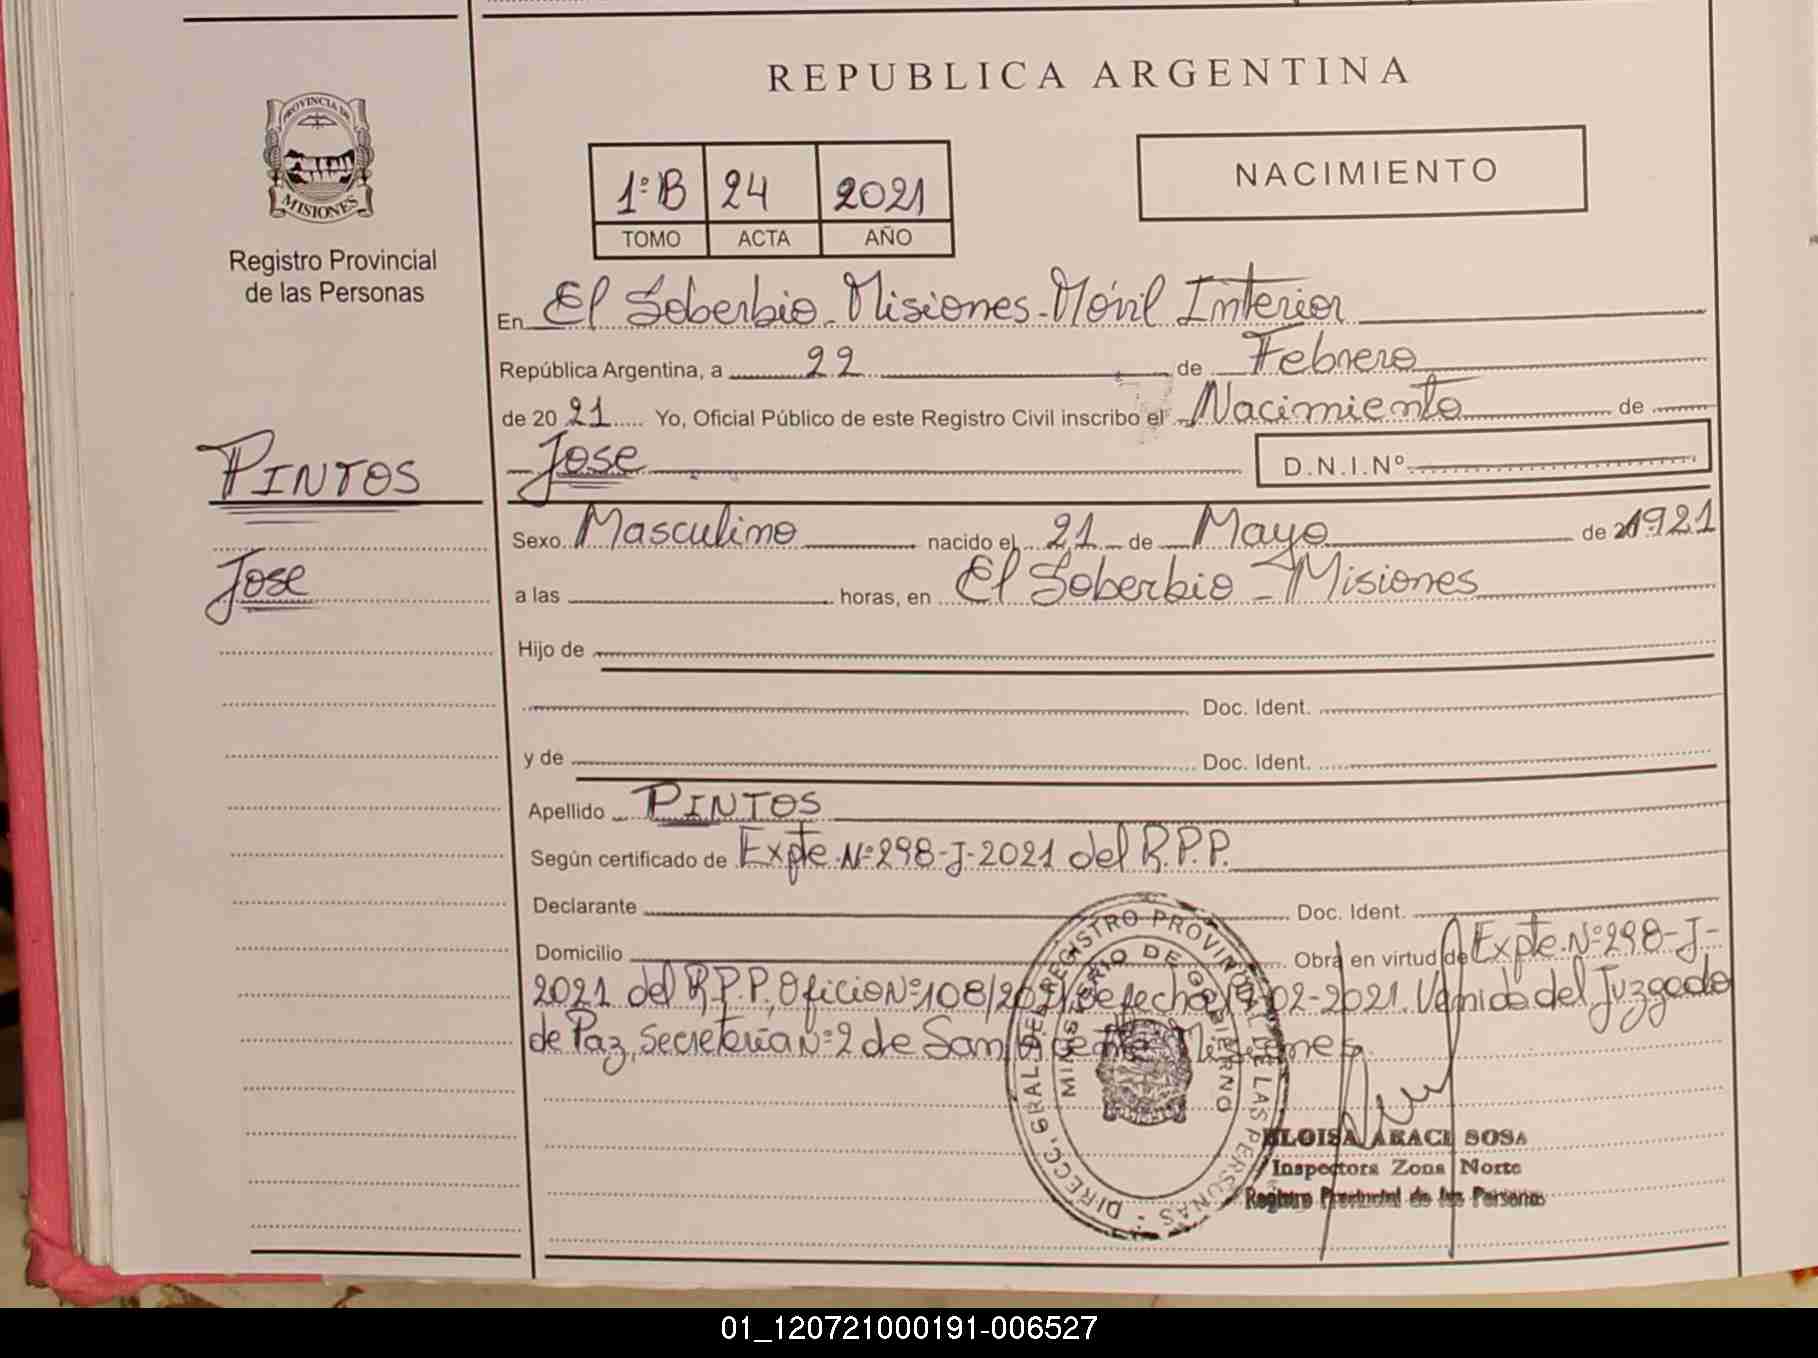 REPUBLICA ARGENTINA
PROVINCIA DE
MISIONES
Registro Provincial
de las Personas
1º B 24 2021
TOMO ACTA AÑO
NACIMIENTO
En El Soberbio - Misiones - Móvil Interior
República Argentina, a 22 de Febrero
de 2021 Yo, Oficial Público de este Registro Civil inscribo el Nacimiento de
PINTOS
Jose D.N.I.Nº
Sexo Masculino nacido el 21 de Mayo de 1921
Jose
a las horas, en El Soberbio - Misiones
Hijo de
Doc. Ident.
y de Doc. Ident.
Apellido PINTOS
Según certificado de Expte. Nº 298-J-2021 del R.P.P.
Declarante Doc. Ident.
Domicilio Obra en virtud de Expte. Nº 298-J-
2021 del R.P.P, Oficio Nº 108/2021 de fecha -02-2021. Venido del Juzgado
de Paz, Secretaría Nº 2 de San Vicente Misiones.
DIRECC. GRAL. DEL REGISTRO PROVINCIAL DE LAS PERSONAS
MINISTERIO DE GOBIERNO
ELOISA ARACI SOSA
Inspectora Zona Norte
Registro Provincial de las Personas
01_120721000191-006527